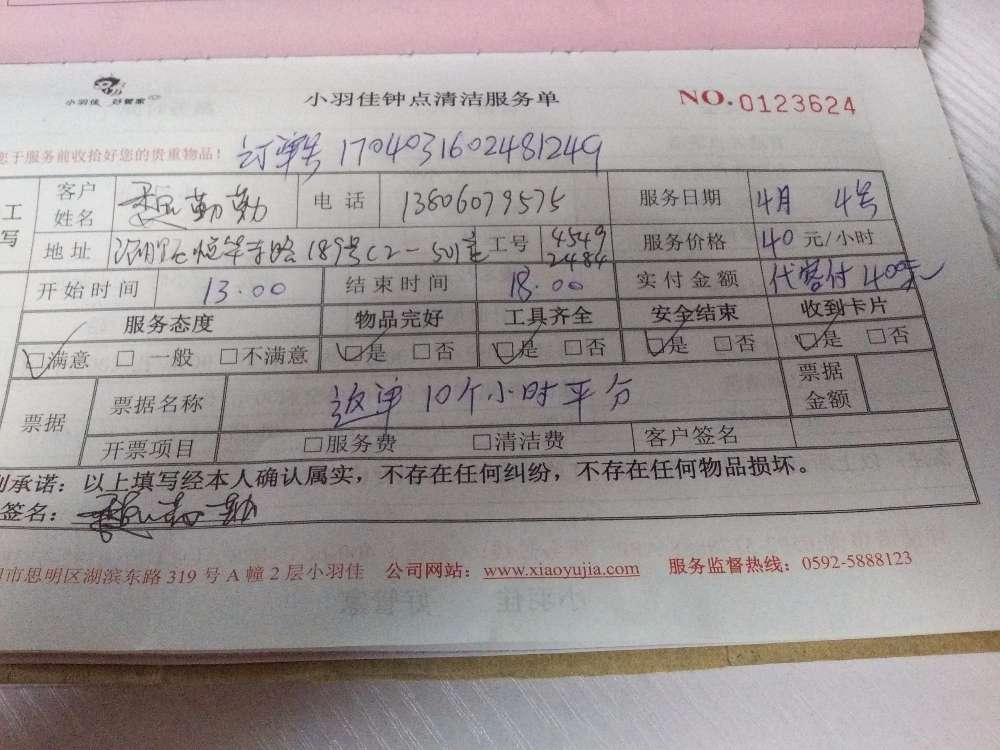 小羽佳 好管家
小羽佳钟点清洁服务单
NO. 0123624
您于服务前收拾好您的贵重物品！ 订单号 1704031602481249
工 客户姓名 勤勤 电话 13806079575 服务日期 4月 4号
写 地址 189号C2-501室 工号 4549 2484 服务价格 40 元/小时
开始时间 13.00 结束时间 18.00 实付金额 代客付400元
服务态度 物品完好 工具齐全 安全结束 收到卡片
☑满意 □一般 □不满意 ☑是 □否 ☑是 □否 ☑是 □否 ☑是 □否
票据 票据名称 返单10个小时平分 票据金额
开票项目 □服务费 □清洁费 客户签名
承诺：以上填写经本人确认属实，不存在任何纠纷，不存在任何物品损坏。
签名： 勤勤
市思明区湖滨东路 319 号 A 幢 2 层小羽佳 公司网站：www.xiaoyujia.com 服务监督热线：0592-5888123